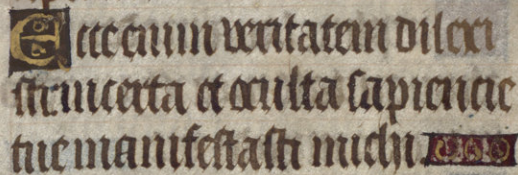 Ecce enim veritatem dilexi
sti incerta et occulta sapiencie
tue manifestasti michi.